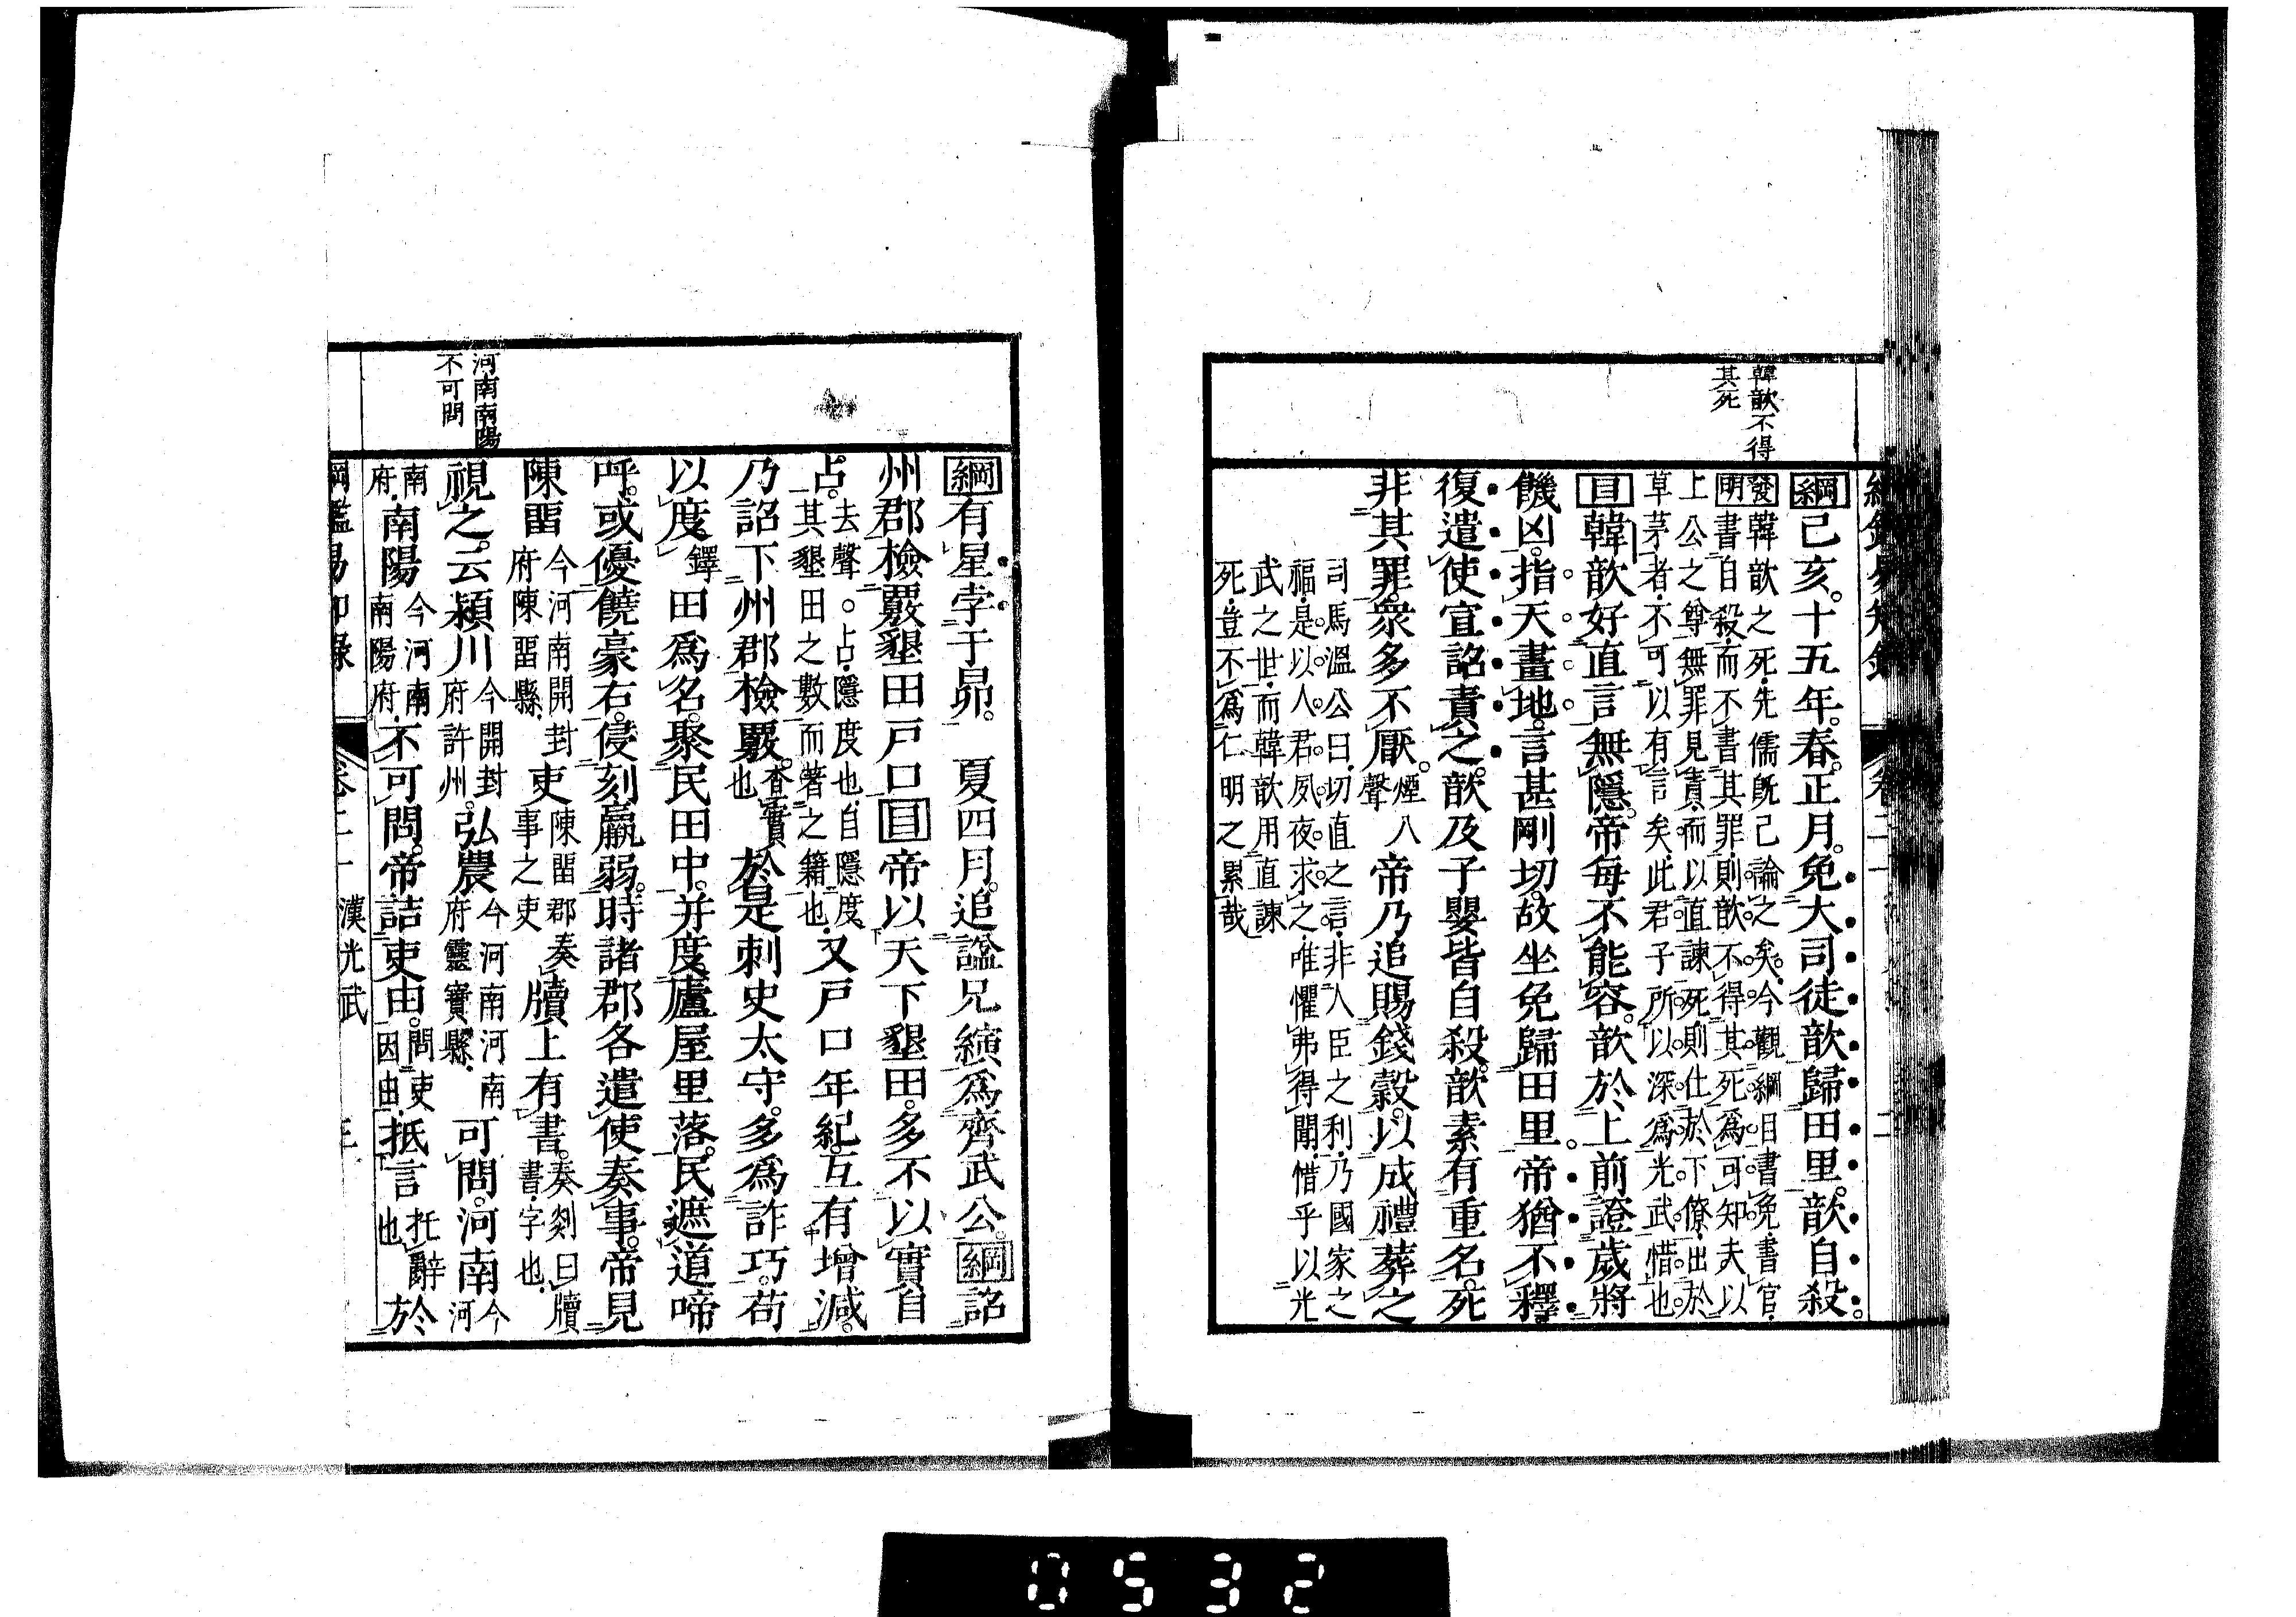 韓歆不得
其死
綱己亥。十五年。春。正月。免大司徒歆歸田里。歆自殺。
發韓歆之死。先儒旣已論之矣。今觀綱目書免。書官。
明書自殺。而不書其罪。則歆不得其死爲可知。夫以
上公之尊。無罪見責。而以直諫死。則仕於下僚。出於
草茅者。不可以有言矣。此君子所以深爲光武惜也。
目韓歆好直言無隱。帝每不能容。歆於上前證歲將
饑凶。指天畫地。言甚剛切。故坐免歸田里。帝猶不釋。
復遣使宣詔責之。歆及子嬰皆自殺。歆素有重名。死
非其罪。衆多不厭。煙入
聲
帝乃追賜錢穀。以成禮葬之
司馬溫公曰。切直之言。非人臣之利。乃國家之
福。是以人君。夙夜求之。唯懼弗得聞。惜乎以光
武之世。而韓歆用直諫
死。豈不爲仁明之累哉
綱有星孛于昴。 夏四月。追諡兄縯爲齊武公。綱詔
州郡檢覈墾田戸口目帝以天下墾田。多不以實自
占。去聲。占。隱度也。自隱度
其墾田之數而著之籍也。
又戸口年紀。互有增減。
乃詔下州郡檢覈。查實
也
於是刺史太守。多爲詐巧。苟
以度鐸田爲名。聚民田中。并度廬屋里落。民遮道啼
呼。或優饒豪右。侵刻羸弱。時諸郡各遣使奏事。帝見
陳畱今河南開封
府陳畱縣。
吏陳畱郡奏
事之吏
牘上有書。奏劄曰牘
書。字也。
視之。云。潁川今開封
府許州。
弘農今河南河南
府靈寶縣。
可問。河南今
河
南
府。
南陽今河南
南陽府。
不可問。帝詰吏由。問吏
因由。
抵言托辭
也
於
河南南陽
不可問
漢光武
0532